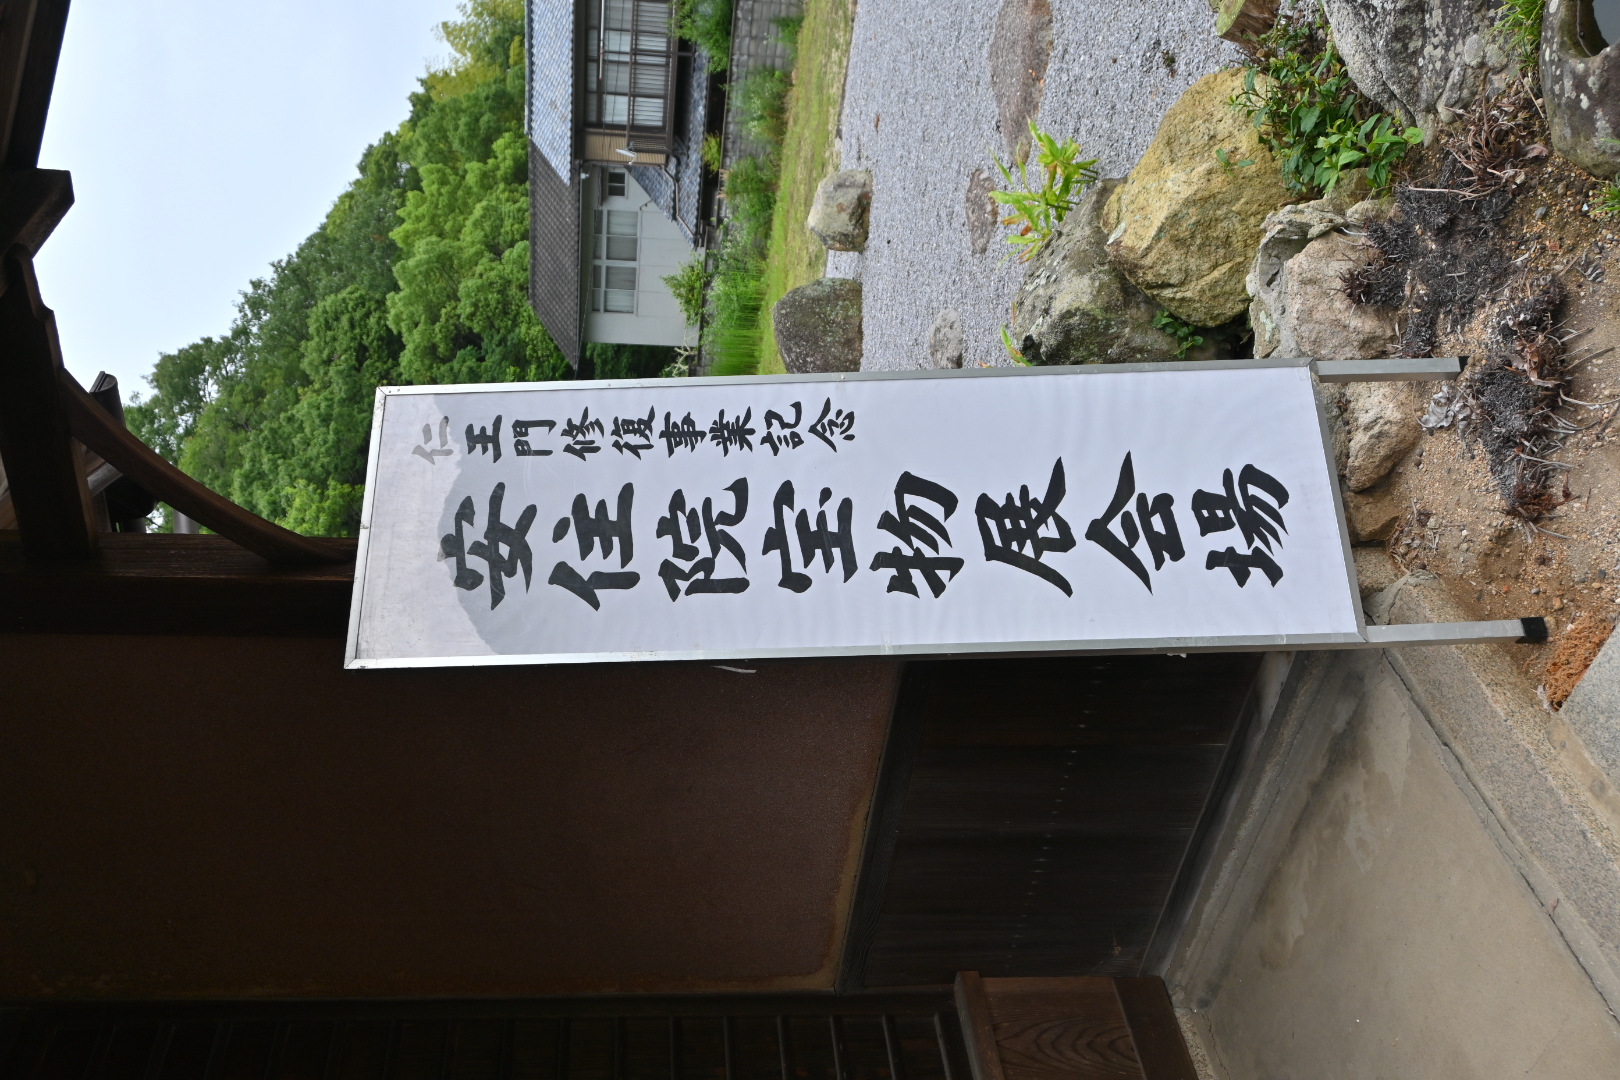 仁王門修復事業記念
安住院宝物展会場